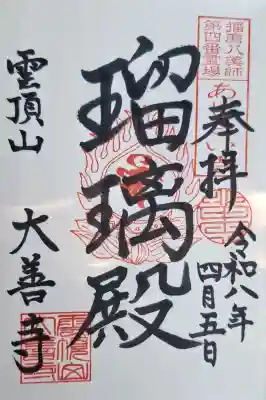 播磨八薬師
第四番霊場
奉拝
令和八年
四月五日
瑠璃殿
雲頂山
大善寺